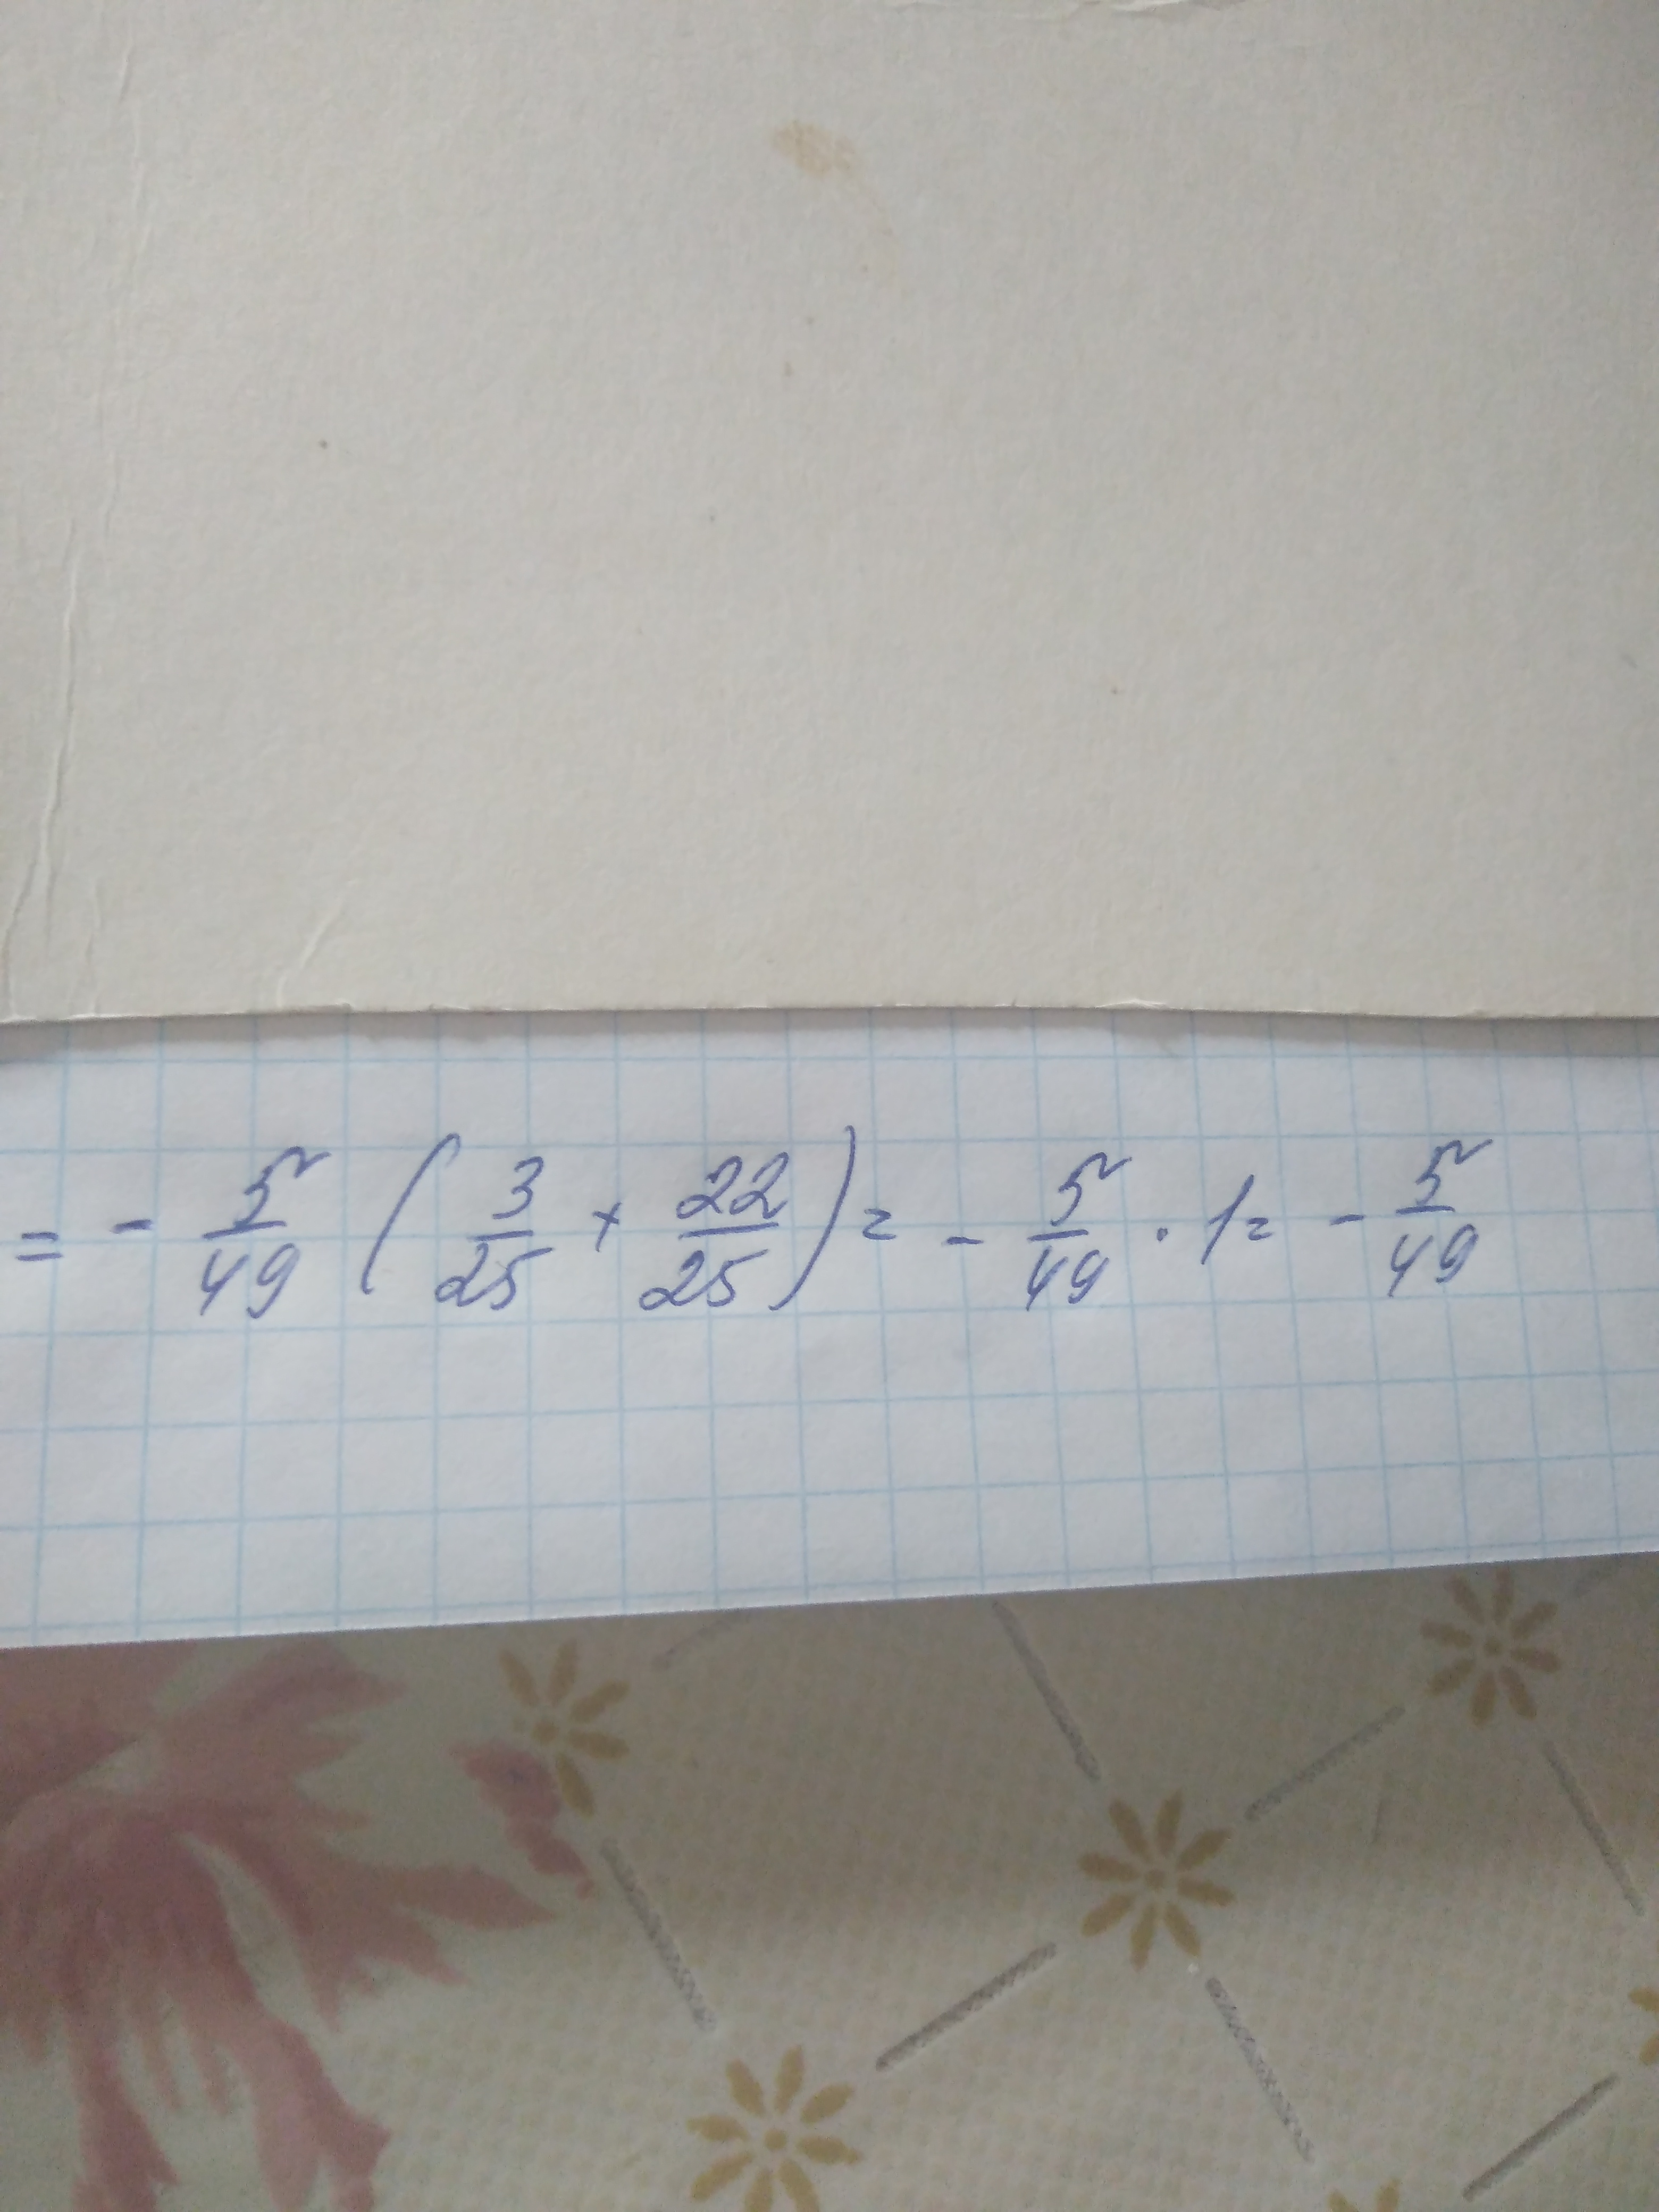 = - 5/49 (3/25 + 22/25) = - 5/49 · 1 = - 5/49